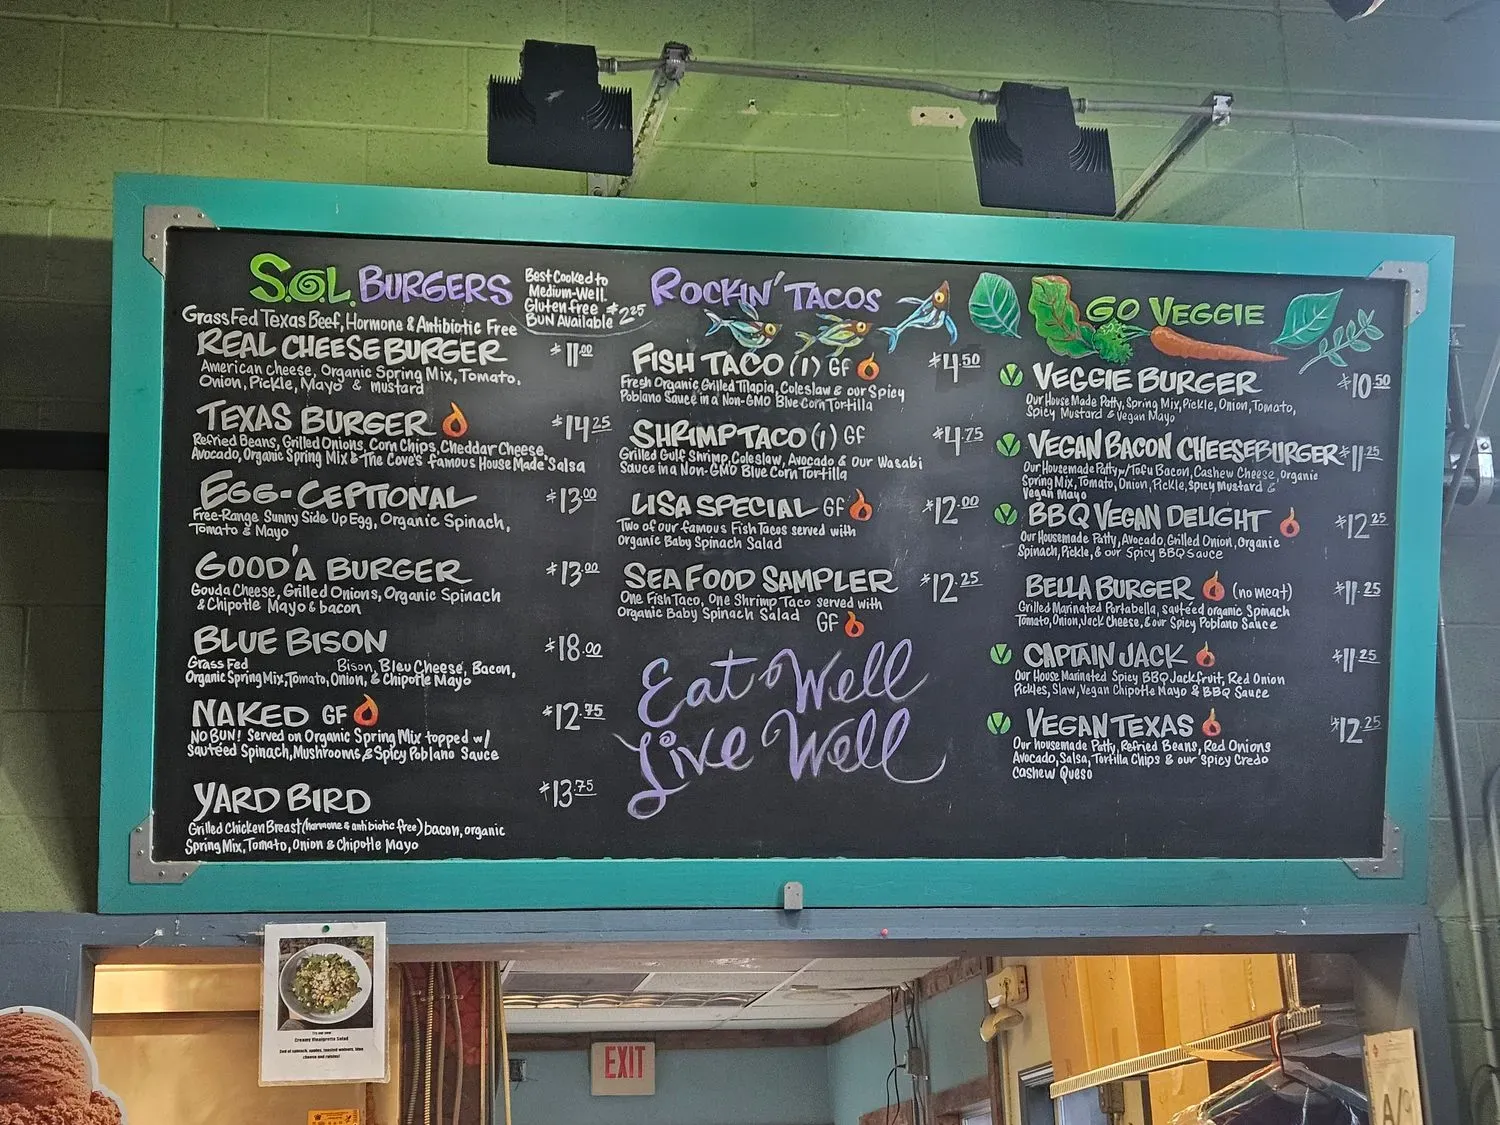 S.O.L. BURGERS
Best Cooked to
Medium-Well.
Gluten free $2.25
BUN Available
Grass Fed Texas Beef, Hormone & Antibiotic Free
REAL CHEESEBURGER $11.00
American cheese, Organic Spring Mix, Tomato,
Onion, Pickle, Mayo & mustard
TEXAS BURGER $14.25
Refried Beans, Grilled Onions, Corn Chips, Cheddar Cheese,
Avocado, Organic Spring Mix & The Cove's famous House Made Salsa
EGG-CEPTIONAL $13.00
Free-Range Sunny Side Up Egg, Organic Spinach,
Tomato & Mayo
GOOD'A BURGER $13.00
Gouda Cheese, Grilled Onions, Organic Spinach
& Chipotle Mayo & bacon
BLUE BISON $18.00
Grass Fed Bison, Bleu Cheese, Bacon,
Organic Spring Mix, Tomato, Onion, & Chipotle Mayo
NAKED GF $12.75
NO BUN! Served on Organic Spring Mix topped w/
sautéed Spinach, Mushrooms, & Spicy Poblano Sauce
YARD BIRD $13.75
Grilled Chicken Breast (hormone & antibiotic free) bacon, organic
Spring Mix, Tomato, Onion & Chipotle Mayo
ROCKIN' TACOS
FISH TACO (1) GF $4.50
Fresh Organic Grilled Tilapia, Coleslaw & our Spicy
Poblano Sauce in a Non-GMO Blue Corn Tortilla
SHRIMP TACO (1) GF $4.75
Grilled Gulf Shrimp, Coleslaw, Avocado & Our Wasabi
Sauce in a Non-GMO Blue Corn Tortilla
LISA SPECIAL GF $12.00
Two of our famous Fish Tacos served with
Organic Baby Spinach Salad
SEAFOOD SAMPLER $12.25
One Fish Taco, One Shrimp Taco served with
Organic Baby Spinach Salad GF
Eat Well
Live Well
GO VEGGIE
VEGGIE BURGER $10.50
Our House Made Patty, Spring Mix, Pickle, Onion, Tomato,
Spicy Mustard & Vegan Mayo
VEGAN BACON CHEESEBURGER $11.25
Our Housemade Patty w/Tofu Bacon, Cashew Cheese, organic
Spring Mix, Tomato, Onion, Pickle, Spicy Mustard &
Vegan Mayo
BBQ VEGAN DELIGHT $12.25
Our Housemade Patty, Avocado, Grilled Onion, Organic
Spinach, Pickle, & our Spicy BBQ sauce
BELLA BURGER (no meat) $11.25
Grilled Marinated Portabella, sautéed organic Spinach
Tomato, Onion, Jack Cheese, & our Spicy Poblano Sauce
CAPTAIN JACK $11.25
Our House Marinated Spicy BBQ Jackfruit, Red Onion
Pickles, Slaw, Vegan Chipotle Mayo & BBQ Sauce
VEGAN TEXAS $12.25
Our housemade Patty, Refried Beans, Red Onions
Avocado, Salsa, Tortilla Chips & our Spicy Credo
Cashew Queso
Try our new
Creamy Vinaigrette Salad
EXIT
A